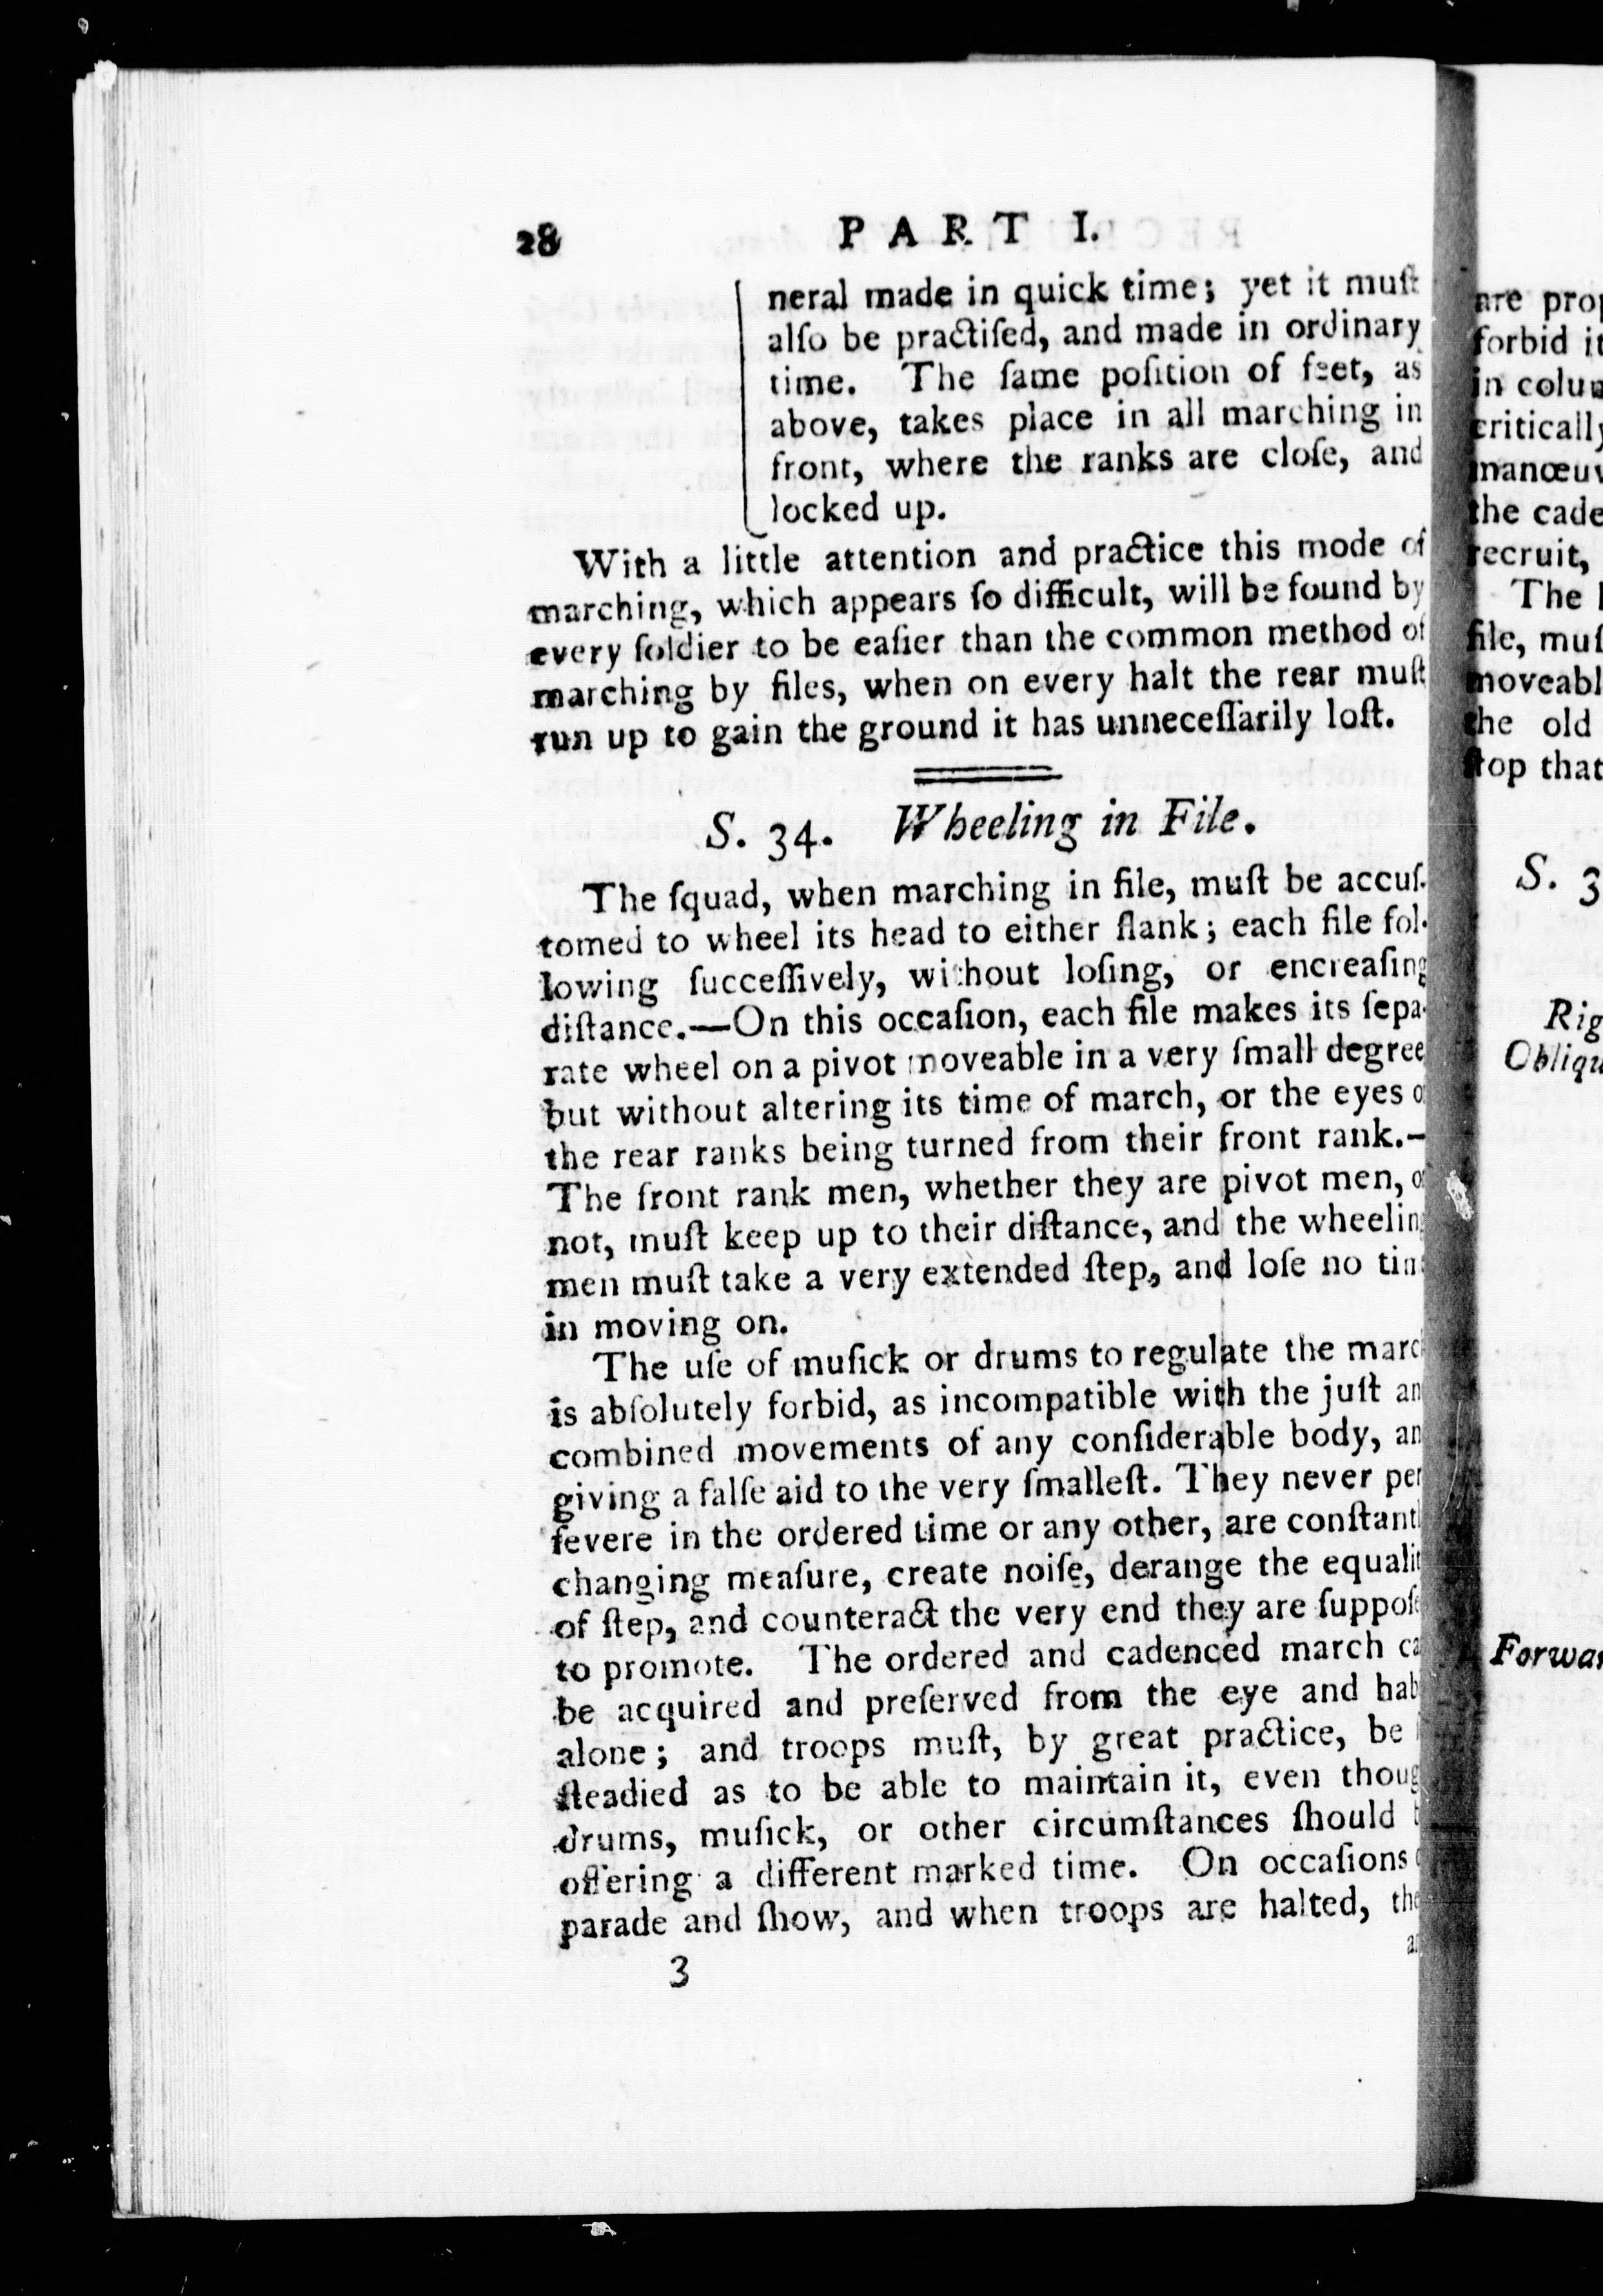 28 PART I.
neral made in quick time; yet it muſt
alſo be practiſed, and made in ordinary
time. The ſame poſition of feet, as
above, takes place in all marching in
front, where the ranks are cloſe, and
locked up.
With a little attention and practice this mode of
marching, which appears ſo difficult, will be found by
every ſoldier to be eaſier than the common method of
marching by files, when on every halt the rear muſt
run up to gain the ground it has unneceſſarily loſt.
S. 34. Wheeling in File.
The ſquad, when marching in file, muſt be accuſ-
tomed to wheel its head to either flank; each file fol-
lowing ſucceſſively, without loſing, or encreaſing
diſtance.—On this occaſion, each file makes its ſepa-
rate wheel on a pivot moveable in a very ſmall degree
but without altering its time of march, or the eyes o
the rear ranks being turned from their front rank.—
The front rank men, whether they are pivot men, o
not, muſt keep up to their diſtance, and the wheelin
men muſt take a very extended ſtep, and loſe no
in moving on.
The uſe of muſick or drums to regulate the marc
is abſolutely forbid, as incompatible with the juſt an
combined movements of any conſiderable body, an
giving a falſe aid to the very ſmalleſt. They never per
ſevere in the ordered time or any other, are conſtantl
changing meaſure, create noiſe, derange the equalit
of ſtep, and counteract the very end they are ſuppoſe
to promote. The ordered and cadenced march ca
be acquired and preſerved from the eye and hab
alone; and troops muſt, by great practice, be
ſteadied as to be able to maintain it, even thoug
drums, muſick, or other circumſtances ſhould
offering a different marked time. On occaſions
parade and ſhow, and when troops are halted, the
3
are prop
forbid it
in colum
critically
manœuv
the cade
recruit,
The
file, muſ
moveabl
the old
ſtop that
S. 3
Rig
Obliqu
Forwar